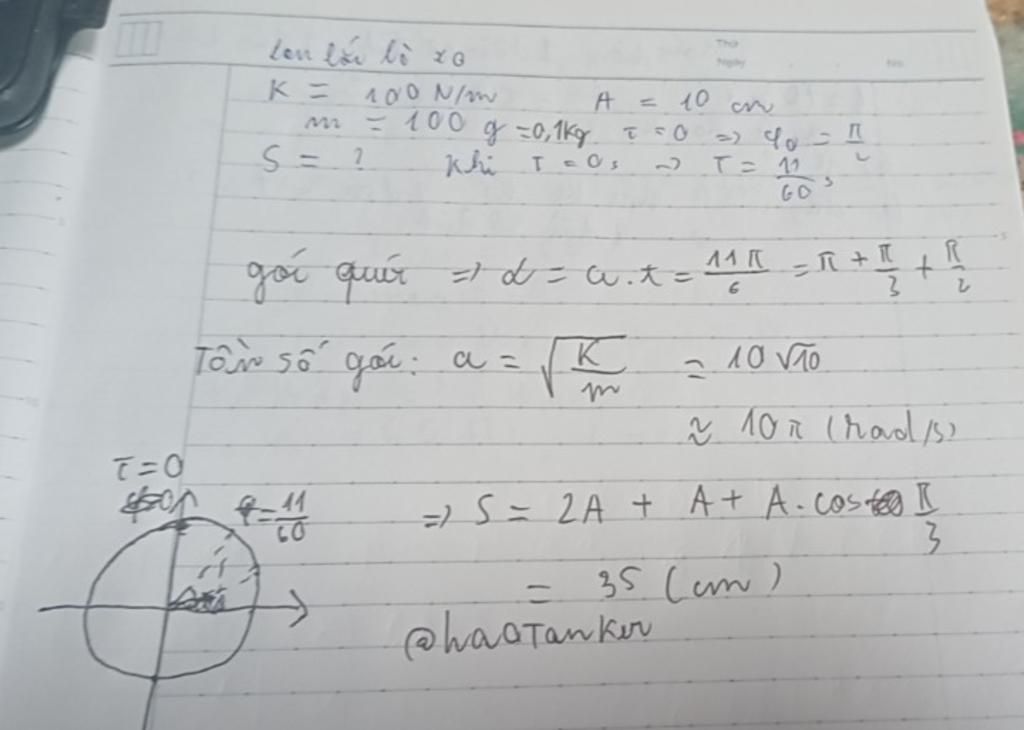 Thứ
Ngày
No.
Con lắc lò xo
K = 100 N/m A = 10 cm
m = 100 g = 0,1kg. τ = 0 => φ₀ = π/2
S = ? Khi τ = 0s → τ = 11/60 s
góc quét => α = ω.t = 11π/6 = π + π/3 + π/2
Tần số góc: ω = √(K/m) = 10√10
≈ 10π (rad/s)
τ = 0
φ = 11/60
=> S = 2A + A + A.cos π/3
= 35 (cm)
@haoTanker